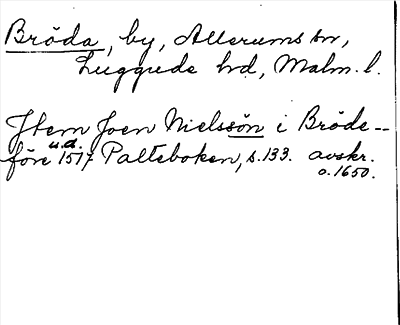 Bröda, by, Allerums sn,
Luggude hd, Malm. l.
Jtem Joen Nielssön i Bröde --
u.d.
före 1517 Palteboken, s.133. avskr.
o.1650.